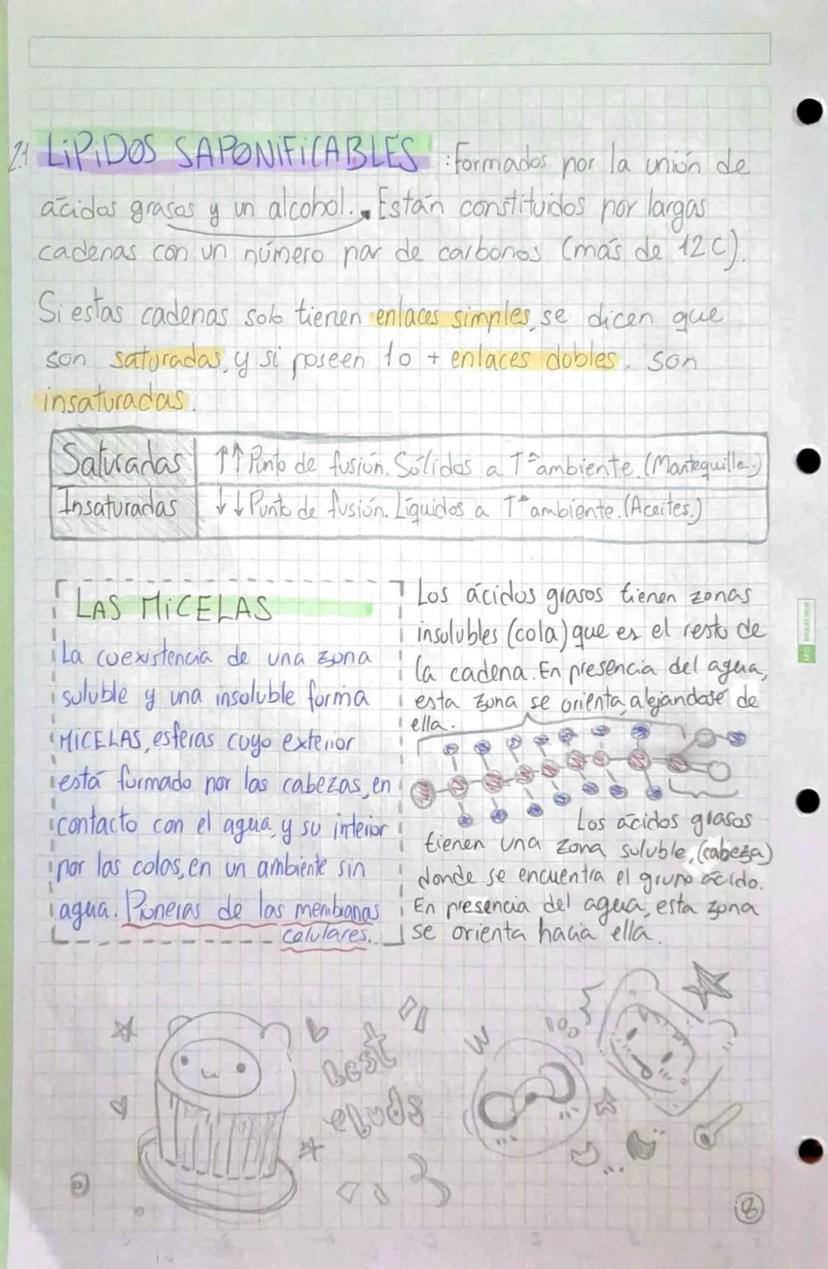 2.1 LÍPIDOS SAPONIFICABLES : formados por la unión de
ácidos grasos y un alcohol. Están constituidos por largas
cadenas con un número par de carbonos (más de 12C).
Si estas cadenas solo tienen enlaces simples, se dicen que
son saturadas, y si poseen 1 o + enlaces dobles, son
insaturadas.
Saturadas ↑↑ Punto de fusión. Sólidos a Tª ambiente. (Mantequilla.)
Insaturadas ↓↓ Punto de fusión. Líquidos a Tª ambiente. (Aceites.)
LAS MICELAS
La coexistencia de una zona
soluble y una insoluble forma
MICELAS, esferas cuyo exterior
está formado por las cabezas, en
contacto con el agua, y su interior
por las colas, en un ambiente sin
agua. Pioneras de las membranas
celulares.
Los ácidos grasos tienen zonas
insolubles (cola) que es el resto de
la cadena. En presencia del agua,
esta zona se orienta, alejandose de
ella.
Los ácidos grasos
tienen una zona soluble, (cabeza)
donde se encuentra el grupo ácido.
En presencia del agua, esta zona
se orienta hacia ella.
best
8